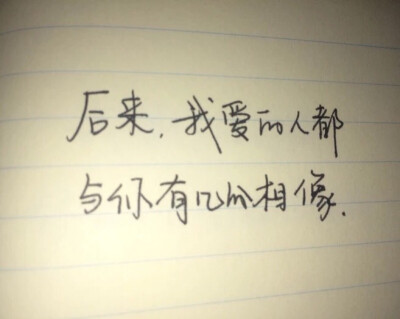 后来，我爱的人都
与你有几分相像.